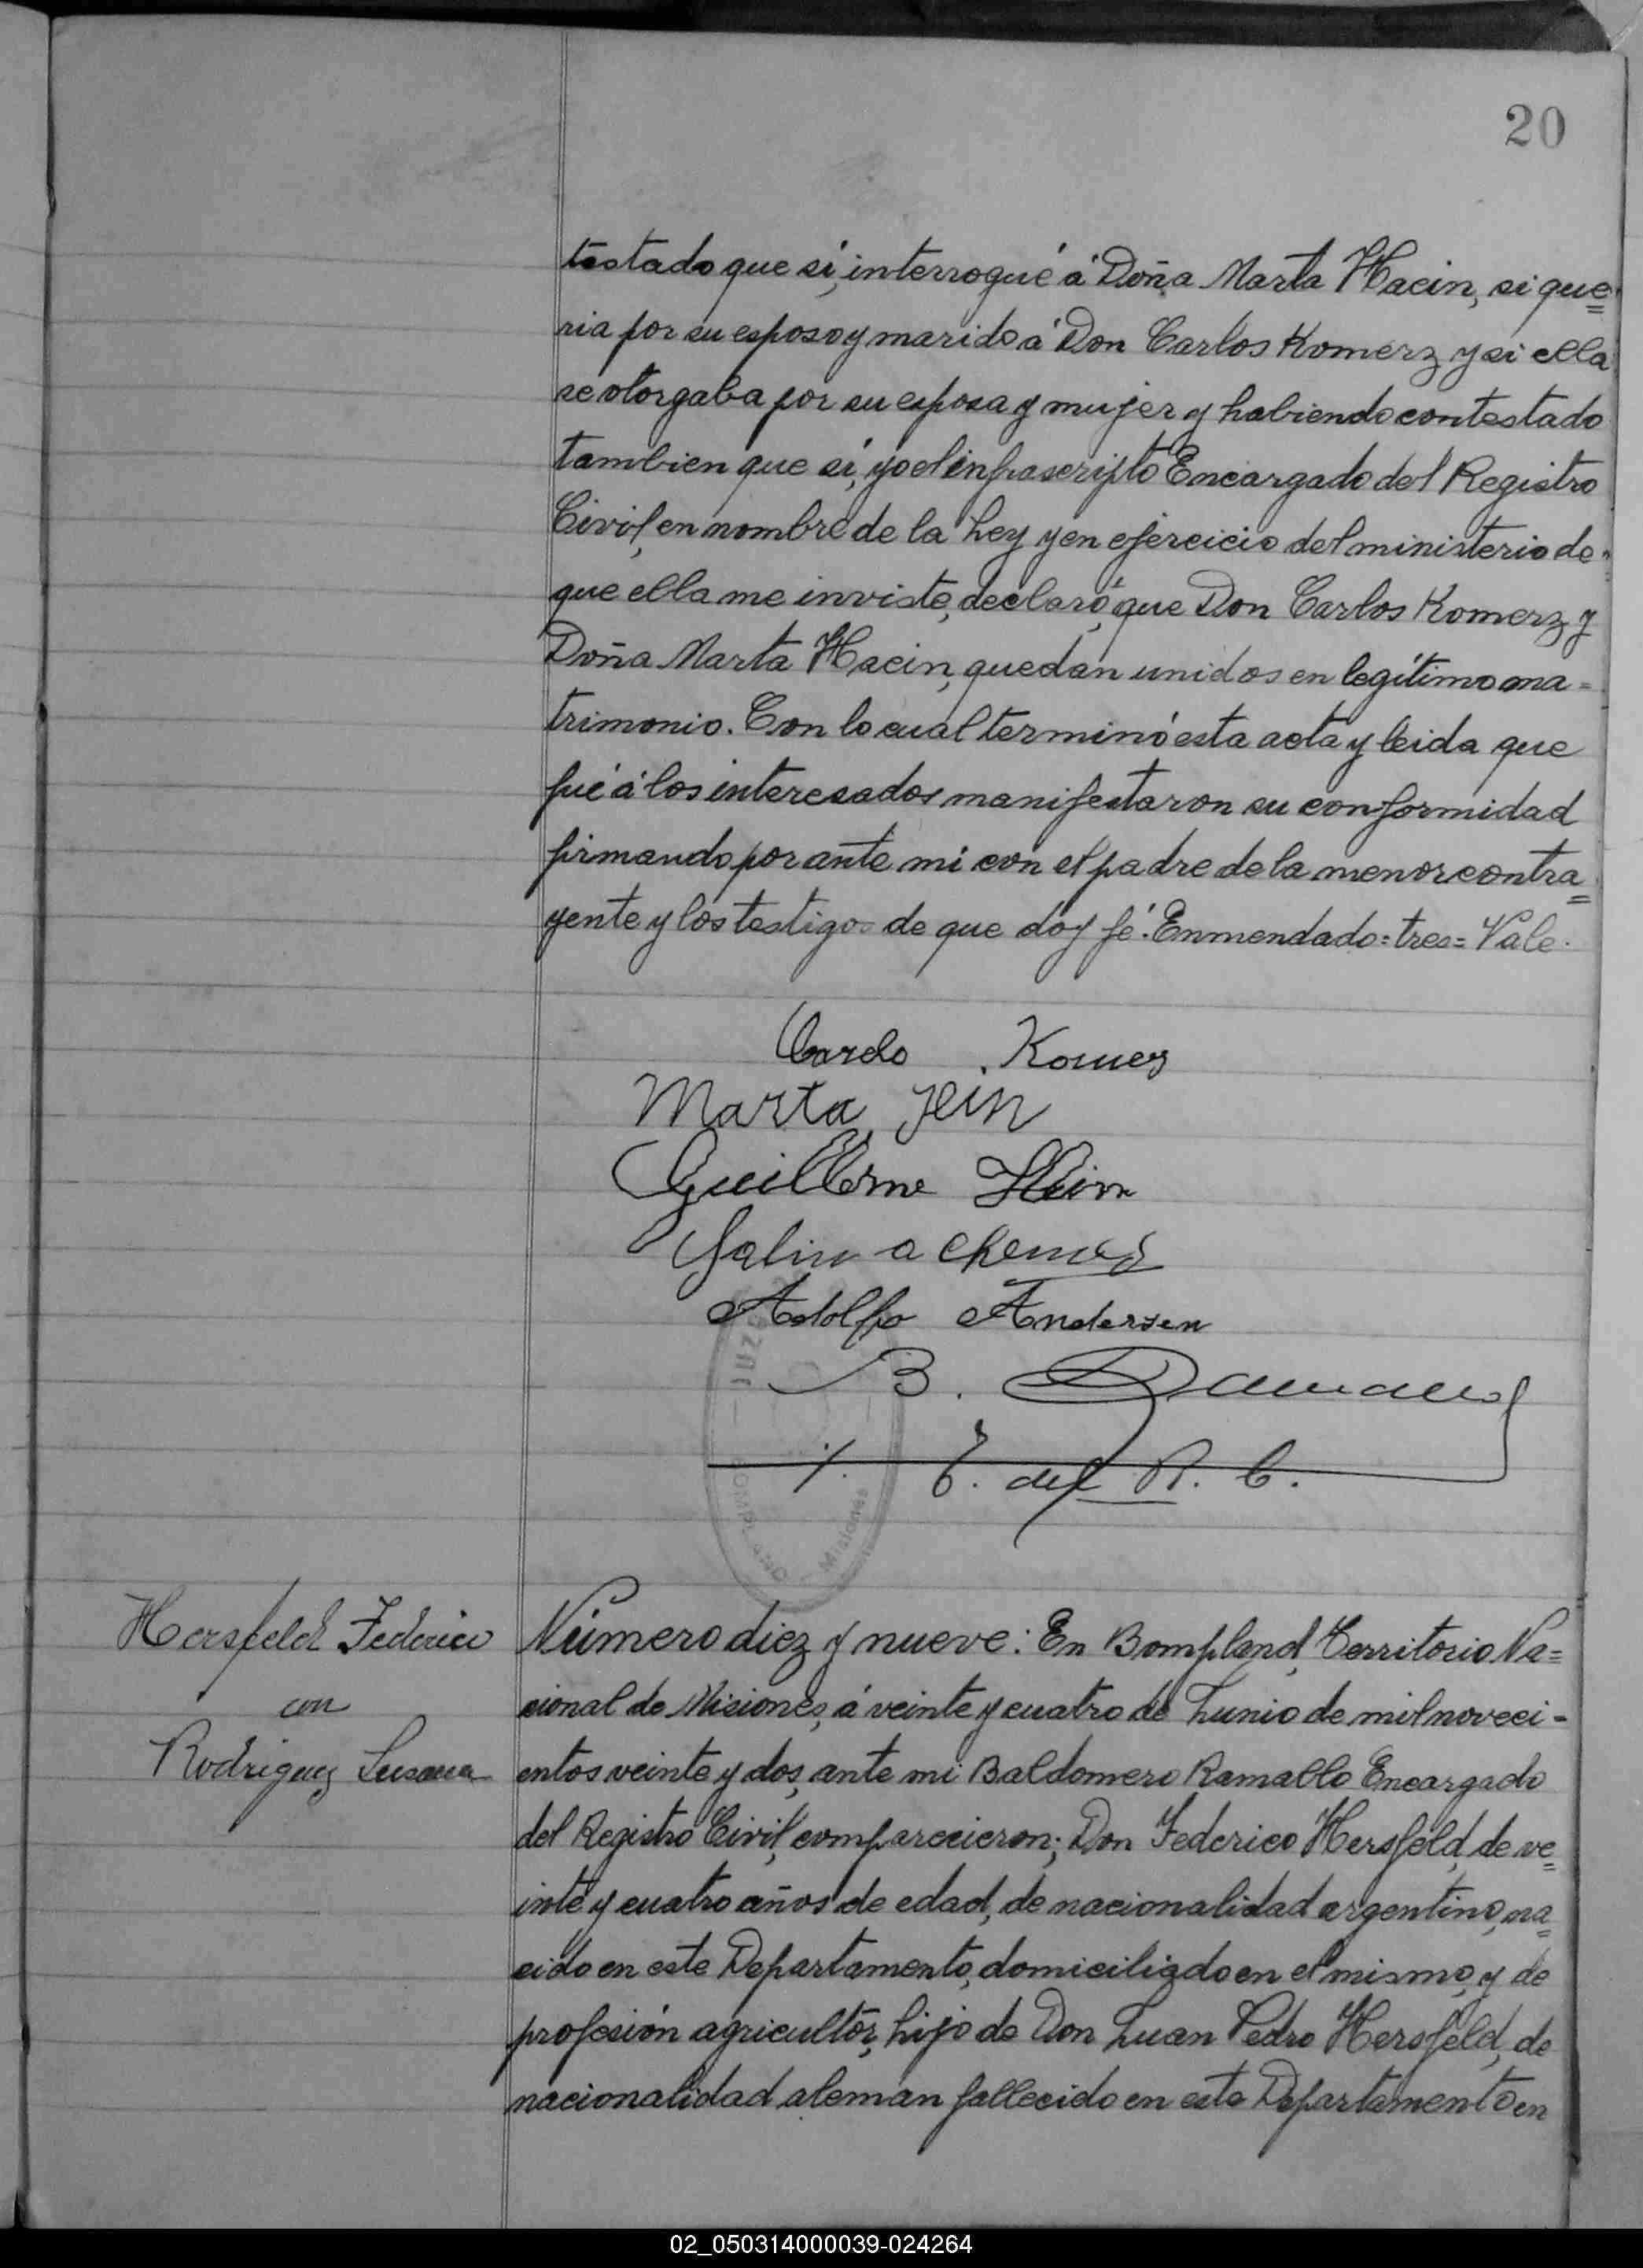 20
testado que si, interrogué á Doña Marta Hacin, si que=
ria por su esposo y marido á Don Carlos Komerz y si ella
se otorgaba por su esposa y mujer y habiendo contestado
tambien que si, yo el infrascripto Encargado del Registro
Civil, en nombre de la Ley y en ejercicio del ministerio de=
que ella me inviste, declaro, que Don Carlos Komerz y
Doña Marta Hacin, quedan unidos en legítimo ma=
trimonio. Con lo cual terminó esta acta y leida que
fué á los interesados manifestaron su conformidad
firmando por ante mi con el padre de la menor contra=
yente y los testigos de que doy fé. Enmendado=tres=Vale.
Carlo Komez
Marta Jein
Guillermo Hein
Adolfo Andersen
B. Ramallo
E. del R. C.
JUZ
BOMPLAND
Misiones
Hersfeld Federico
con
Rodriguez Susana
Número diez y nueve: En Bompland, Territorio Na=
cional de Misiones, á veinte y cuatro de Junio de mil noveci=
entos veinte y dos, ante mi Baldomero Ramallo Encargado
del Registro Civil, comparecieron; Don Federico Hersfeld, de ve=
inte y cuatro años de edad, de nacionalidad argentino, na=
cido en este Departamento, domiciliado en el mismo, y de
profesión agricultor, hijo de Don Juan Pedro Hersfeld, de
nacionalidad aleman fallecido en este Departamento en
02_050314000039-024264